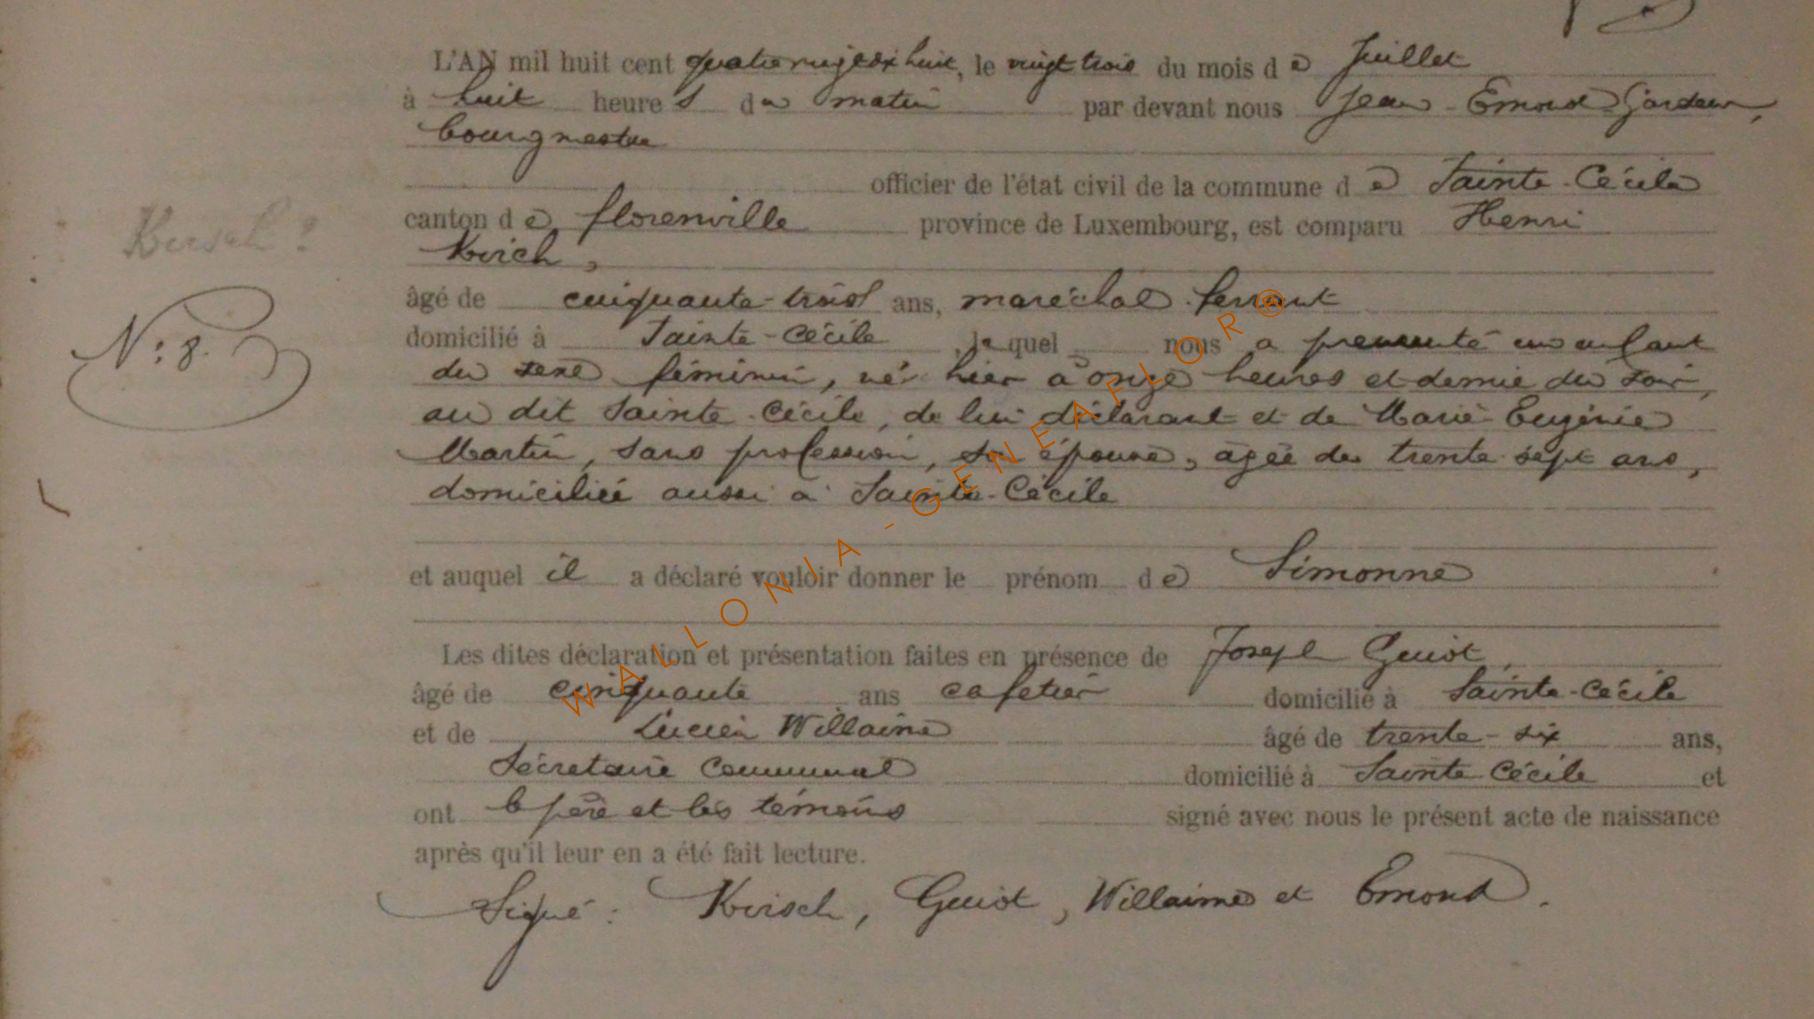 L'AN mil huit cent quatrevingtdix huit, le vingt trois du mois de Juillet
à huit heures du matin par devant nous Jean Emond Gardeur,
bourgmestre
officier de l'état civil de la commune de Sainte-Cécile
canton de Florenville province de Luxembourg, est comparu Henri
Kirch,
Kersch?
âgé de cinquante-trois ans, maréchal ferrant
N: 8.
domicilié à Sainte-Cécile, lequel nous a présenté un enfant
du sexe féminin, né hier à onze heures et demie du soir,
au dit Sainte-Cécile, de lui déclarant et de Marie Eugénie
Martin, sans profession, son épouse, âgée de trente sept ans,
domiciliée aussi à Sainte-Cécile
et auquel il a déclaré vouloir donner le prénom de Simonne
Les dites déclaration et présentation faites en présence de Joseph Guiot,
âgé de cinquante ans cafetier domicilié à Sainte-Cécile
et de Lucien Willaime âgé de trente-six ans,
Secrétaire Communal domicilié à Sainte Cécile et
ont le père et les témoins signé avec nous le présent acte de naissance
après qu'il leur en a été fait lecture.
Signé: Kirsch, Guiot, Willaime et Emond.
WALLONIA-GENEAFLOR®